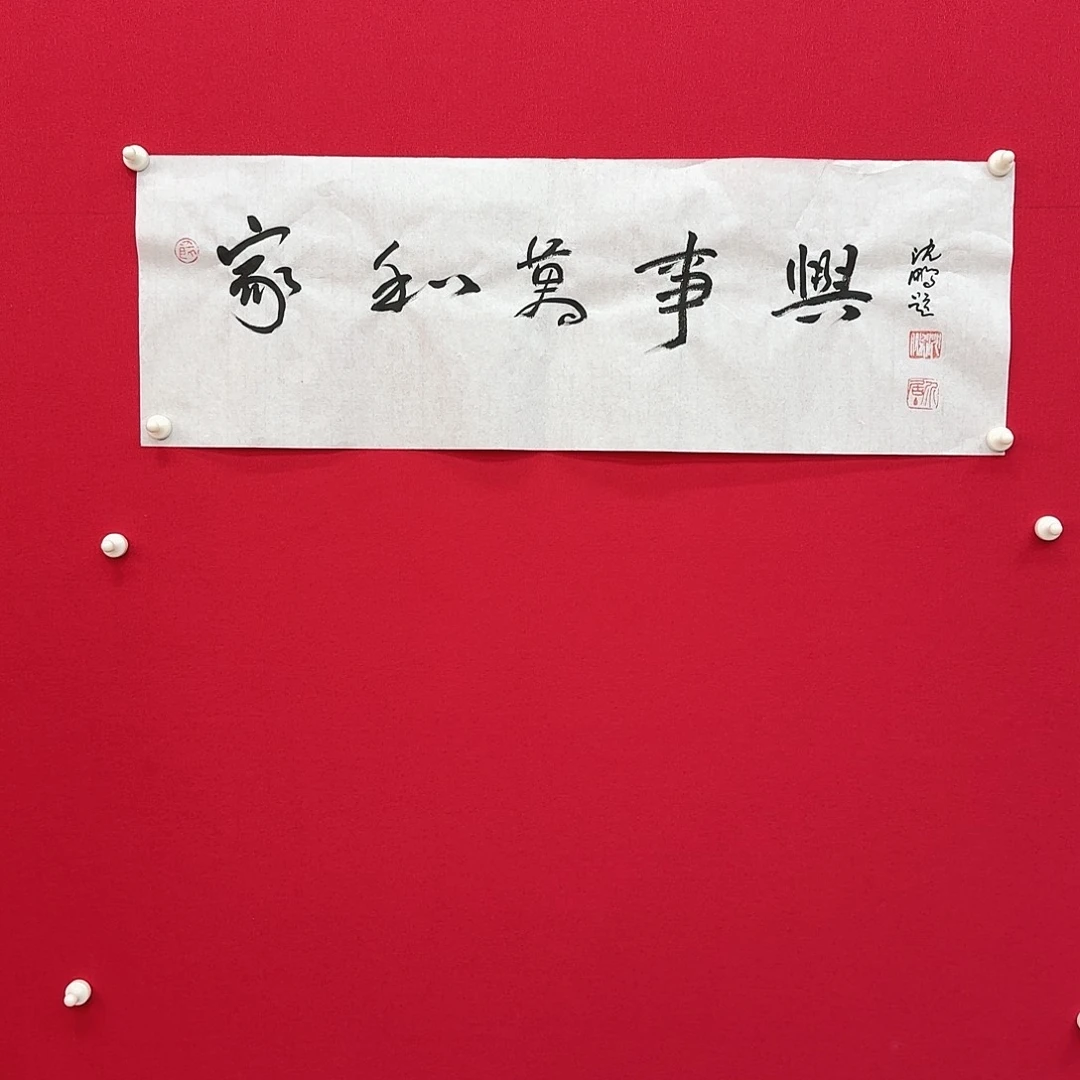 家和萬事興
沈鵬題